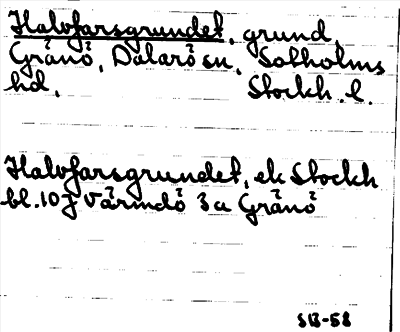 Halvfarsgrundet, grund,
Gränö, Dalarö sn, Sotholms
hd, Stockh. l.
Halvfarsgrundet, ek Stockh
bl. 10 f Värmdö 3 a Gränö
SB-58